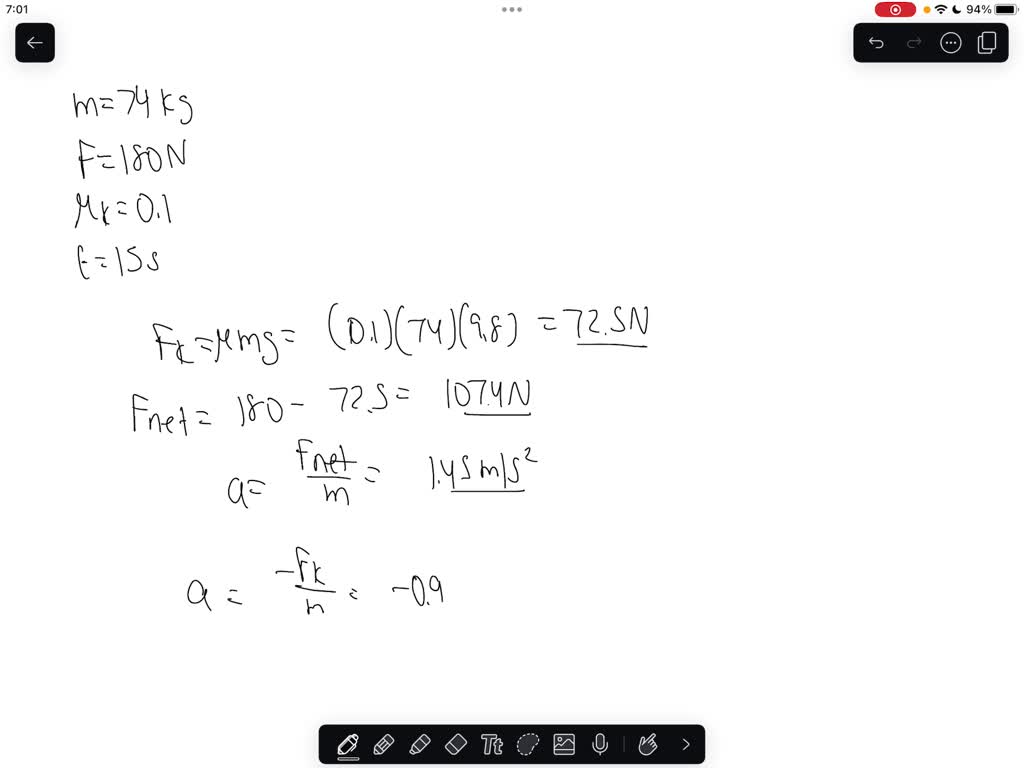 7:01
94%
m=74kg
F=180N
μk=0.1
t=15s
Fk=μmg= (0.1)(74)(9.8) =72.5N
Fnet= 180- 72.5= 107.4N
a= Fnet/m = 1.45m/s²
a= -Fk/m = -0.9
Tt